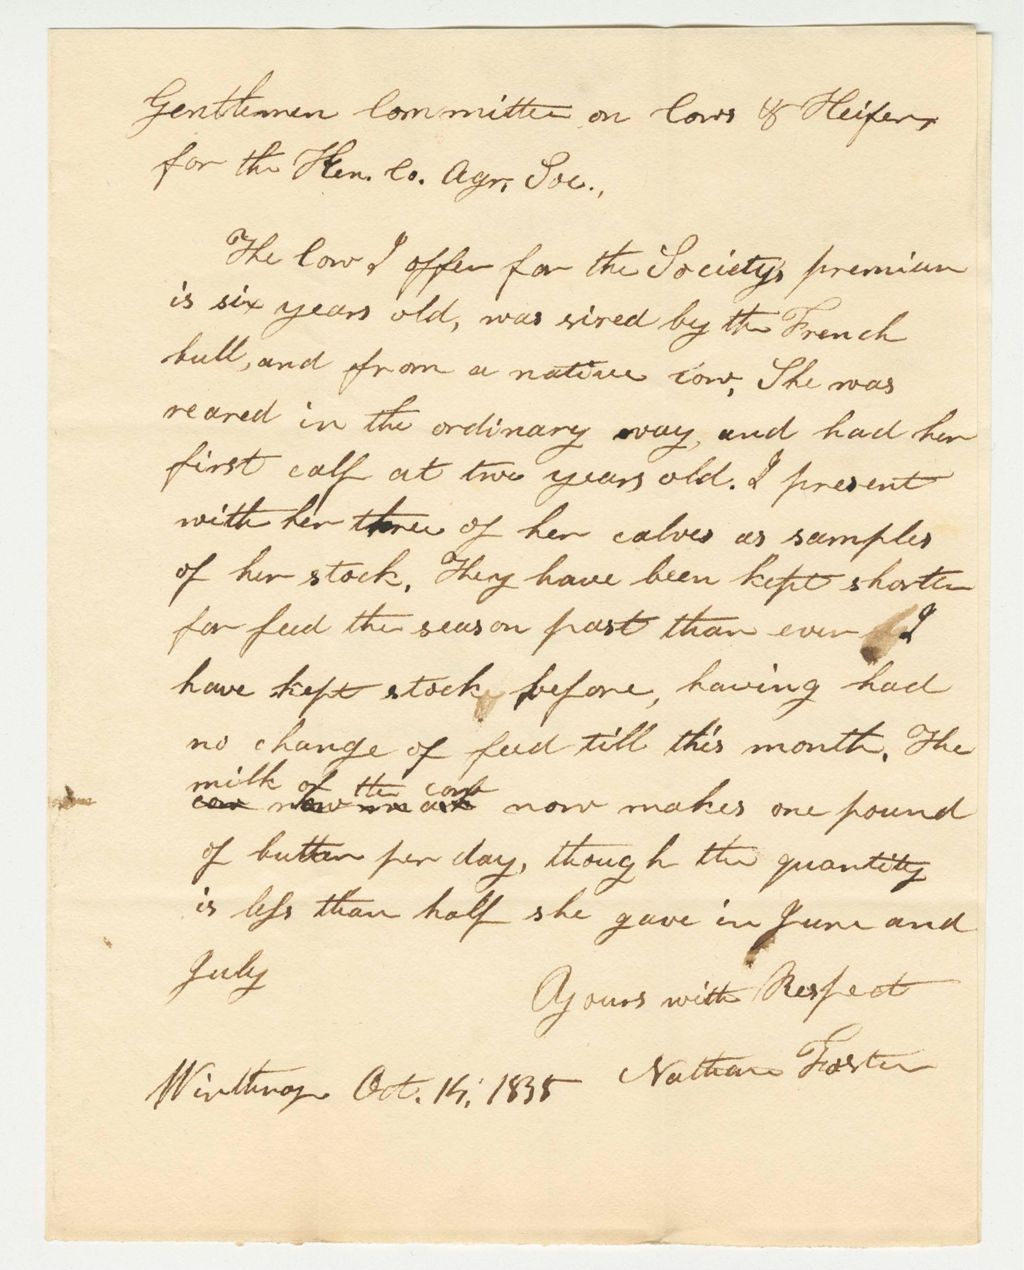 Gentlemen Committee on Cows & Heifers
for the Ken. Co. Agr. Soc.,
The Cow I offer for the Societys premium
is six years old, was sired by the French
bull, and from a native cow, She was
reared in the ordinary way, and had her
first calf at two years old. I present
with her three of her calves as samples
of her stock. They have been kept shorter
for feed the season past than ever I
have kept stock before, having had
no change of feed till this month. The
milk of the cow
now makes one pound
of butter per day, though the quantity
is less than half she gave in June and
July
Yours with Respect
Nathan Foster
Winthrop Oct. 14, 1835